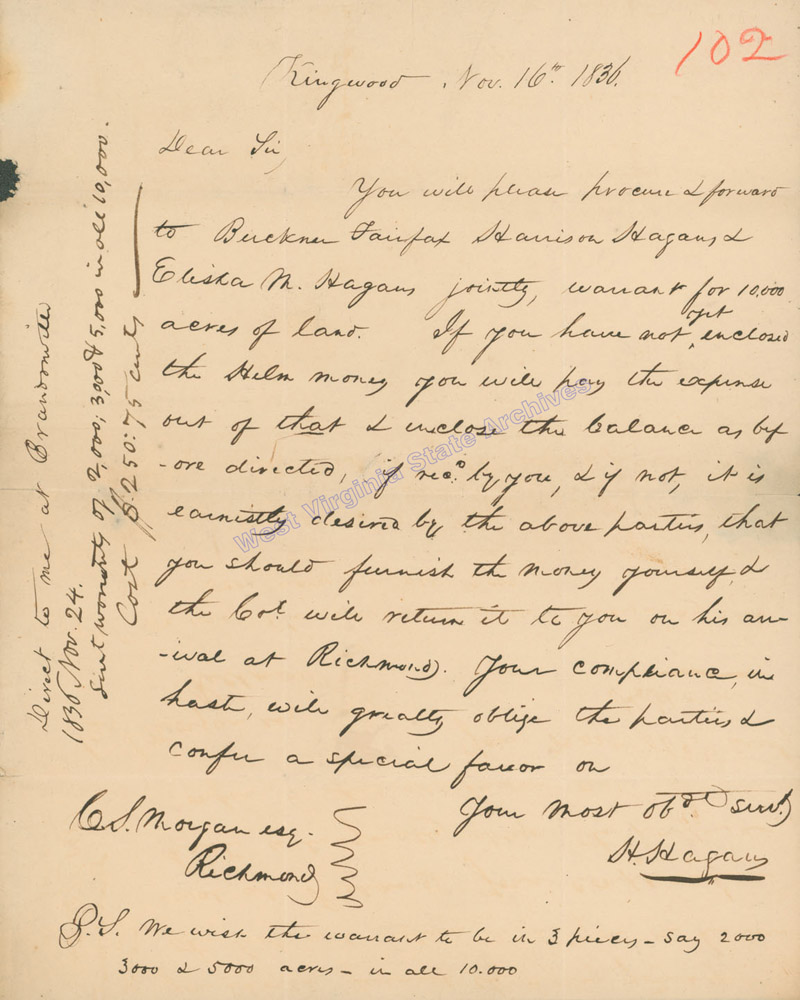 102
Kingwood, Nov. 16th 1836.
Dear Sir,
You will please procure & forward
to Buckner Fairfax Harrison Hagans &
Elisha M. Hagans jointly, warrant for 10.000
acres of land. If you have not yet enclosed
the Helm money you will pay the expense
out of that & inclose the balance as bef
-ore directed, if recd. by you, & if not, it is
earnestly desired by the above parties, that
you should furnish the money yourself, &
the Col. will return it to you on his arr
-ival at Richmond. Your compliance, in
haste, will greatly oblige the parties &
confer a special favor on
Your most obdt. servt.
H. Hagans
C. S. Morgan esq.
Richmond
P.S. We wish the warrant to be in 3 pieces – say 2000
3000 & 5000 acres – in all 10.000
Direct to me at Brandonville
1836 Nov. 24.
Sent warrants of 2,000; 3,000 & 5,000 in all 10,000.
Cost $250:75 cents
West Virginia State Archives